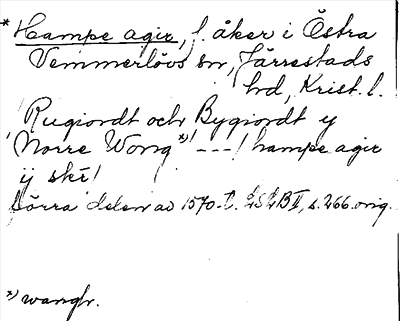 * Hampe agir, f. åker i Östra
Vemmerlövs sn, Järrestads
hd, Krist. l.
Rugiordt och Bygiordt y
Norre Wong *) /---/ hampe agir
ij ske/
Södra delen av 1570-t. LSLB II, s. 266. orig.
*) wanghr.